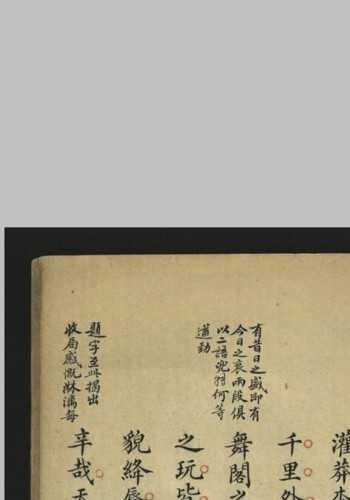 有昔日之盛即有
今日之哀兩段俱
以二語兜轉何等
道勁
題字至此揭出
收局感慨淋漓每
灌莽
千里外
舞閣之
之玩皆
貌絳唇
辛哉天